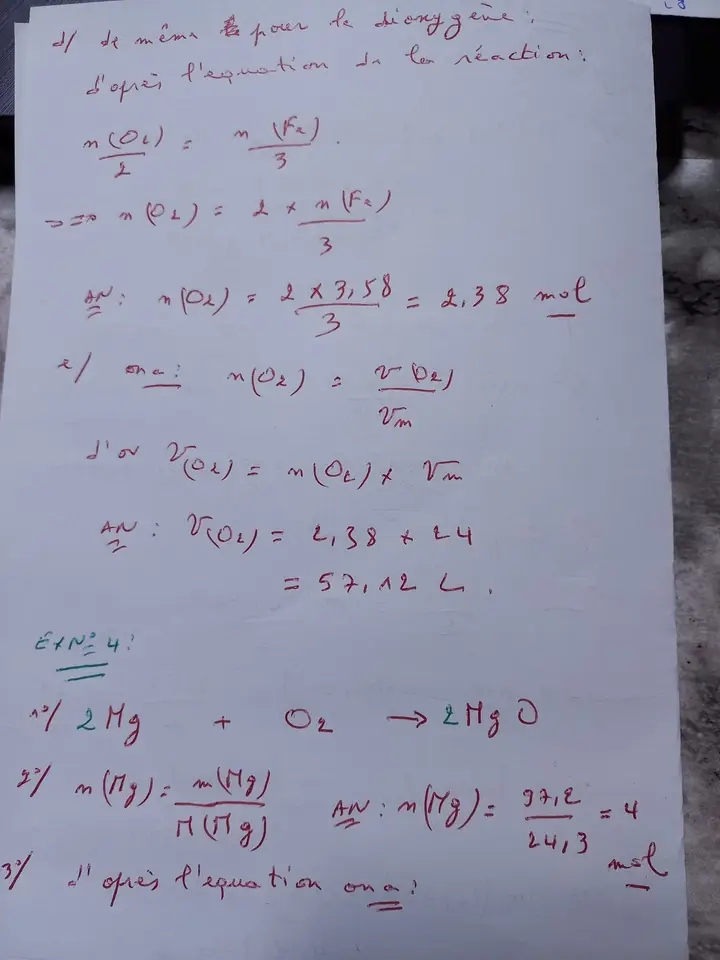 d/ de même pour le dioxygène :
d'après l'equation de la réaction :
n(O2)/2 = n(Fe)/3 .
=> n(O2) = 2 × n(Fe)/3
AN : n(O2) = 2 × 3,58/3 = 2,38 mol
e/ on a : n(O2) = V(O2)/Vm
d'ou V(O2) = n(O2) × Vm
AN : V(O2) = 2,38 × 24
= 57,12 L .
Ex N° 4 :
1°/ 2Mg + O2 → 2MgO
2°/ n(Mg) = m(Mg)/M(Mg) AN : n(Mg) = 97,2/24,3 = 4 mol
3°/ d'après l'equation on a :